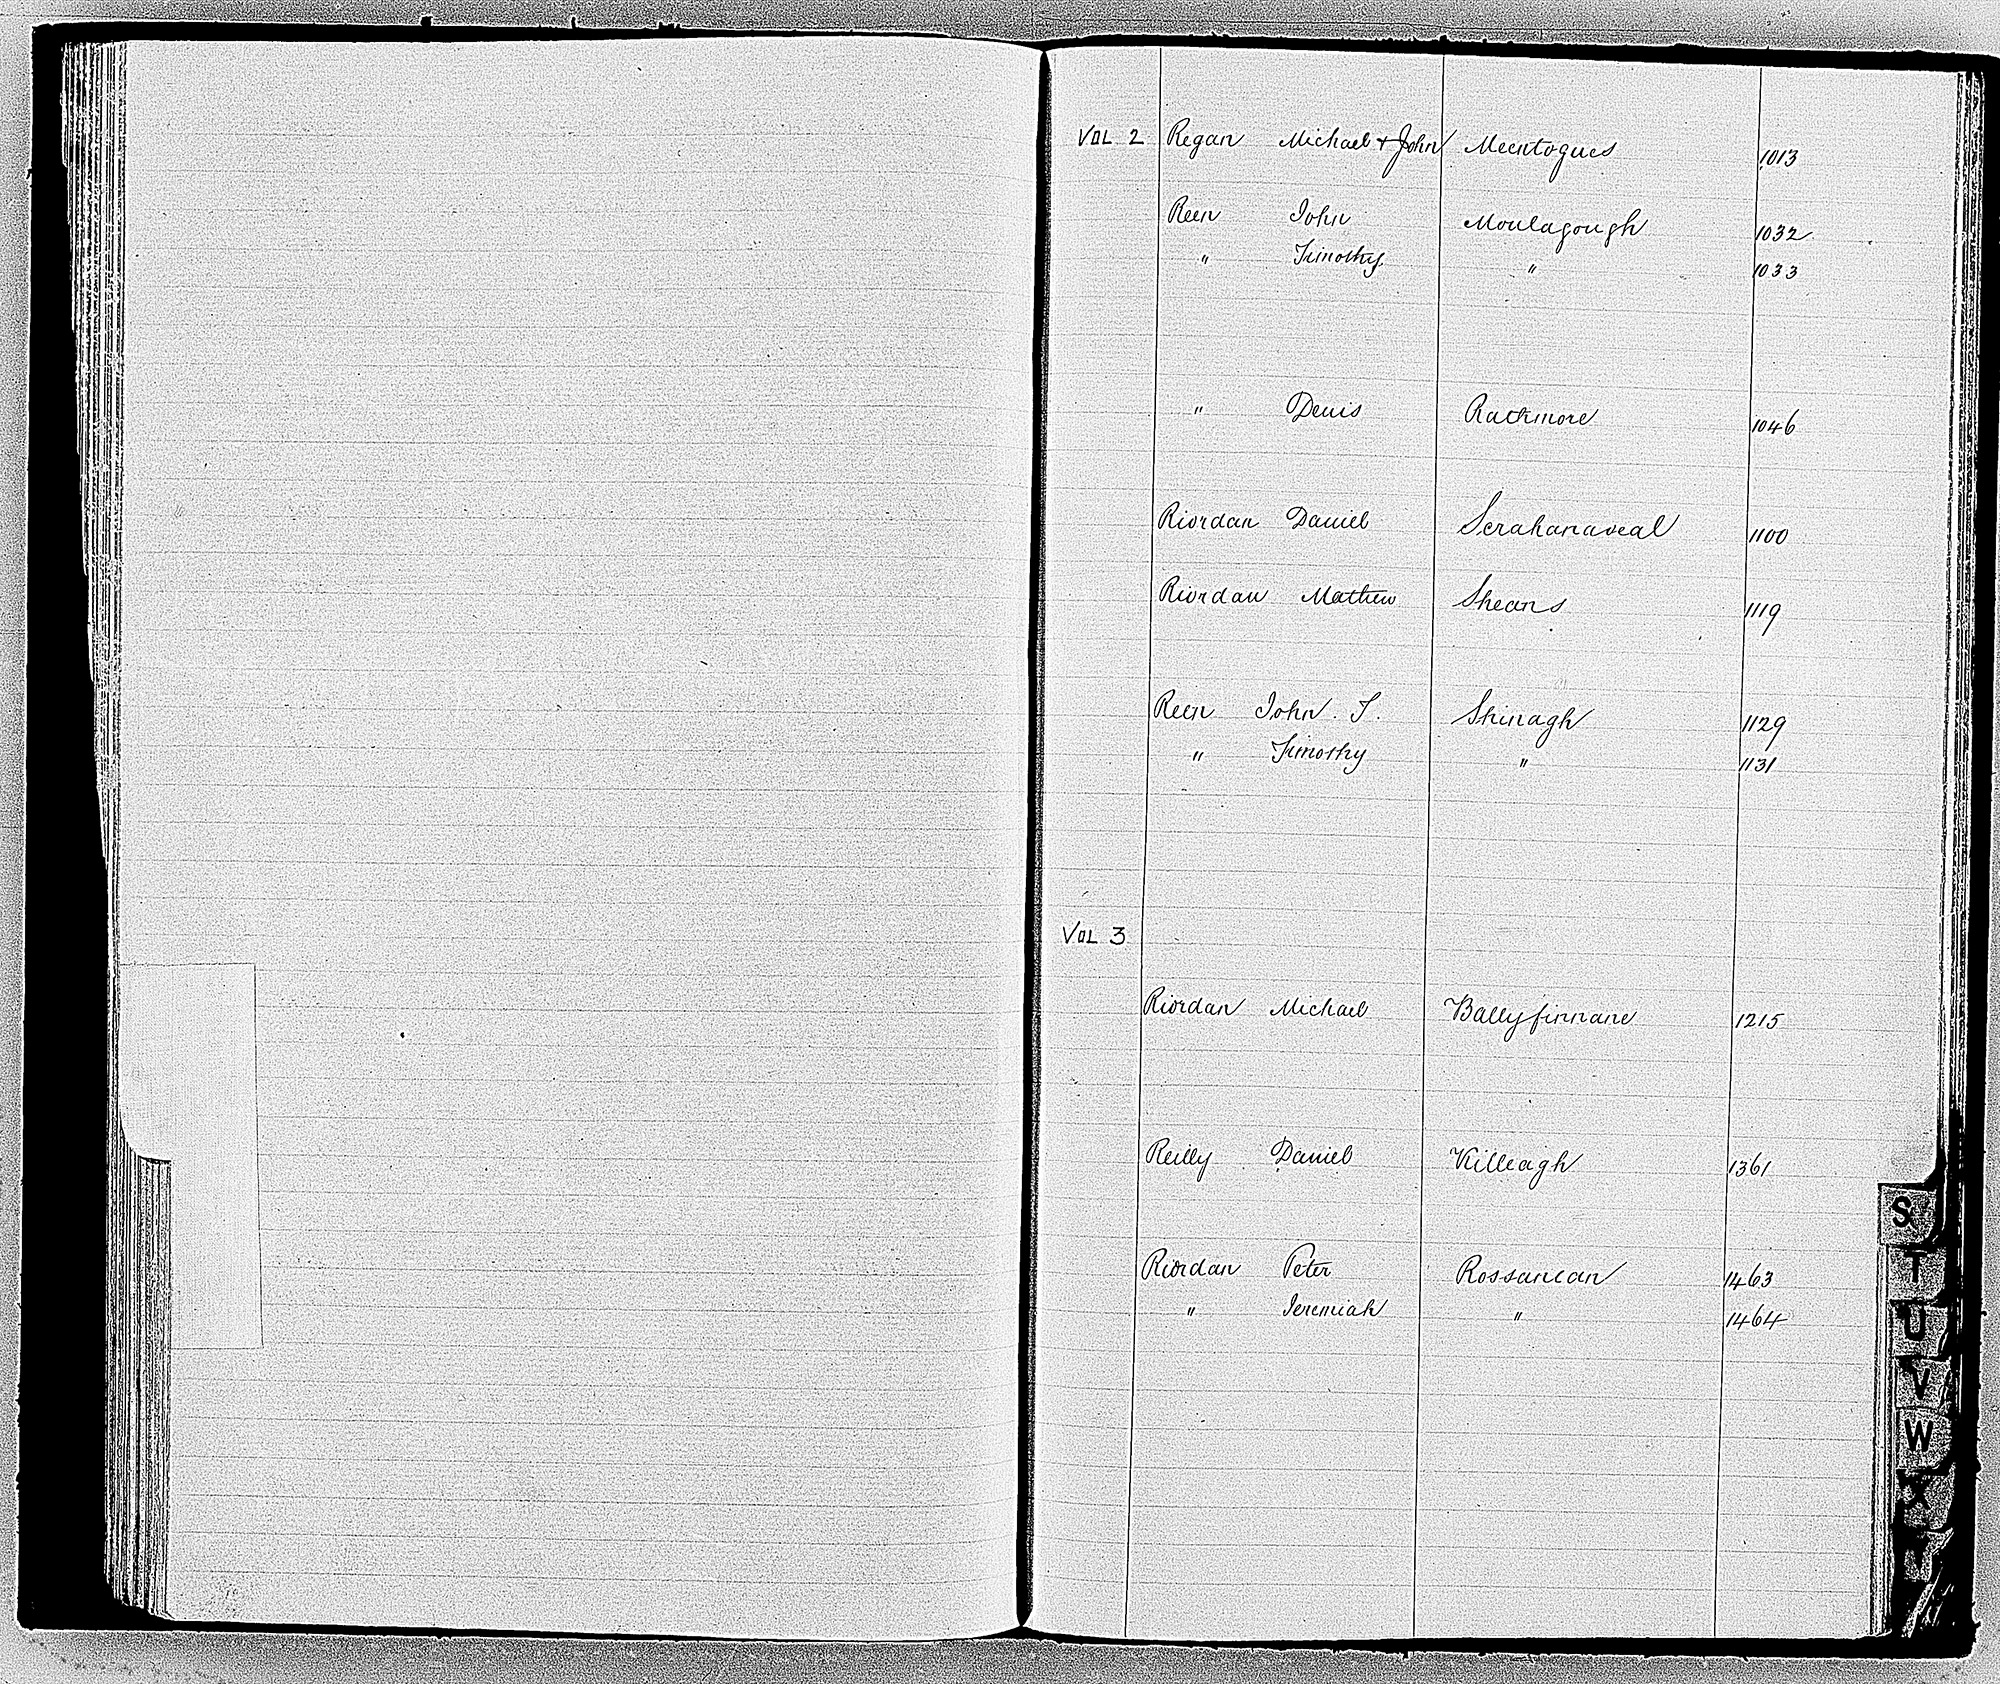 VOL 2 Regan Michael + John Meentogues 1013
Reen John Moulagough 1032
" Timothy " 1033
" Denis Rathmore 1046
Riordan Daniel Scrahanaveal 1100
Riordan Mathew Sheans 1119
Reen John. T. Shinagh 1129
" Timothy " 1131
VOL 3
Riordan Michael Ballyfinnane 1215
Reilly Daniel Killeagh 1361
Riordan Peter Rossanean 1463
" Jeremiah " 1464
S
T
U
V
W
X
Y